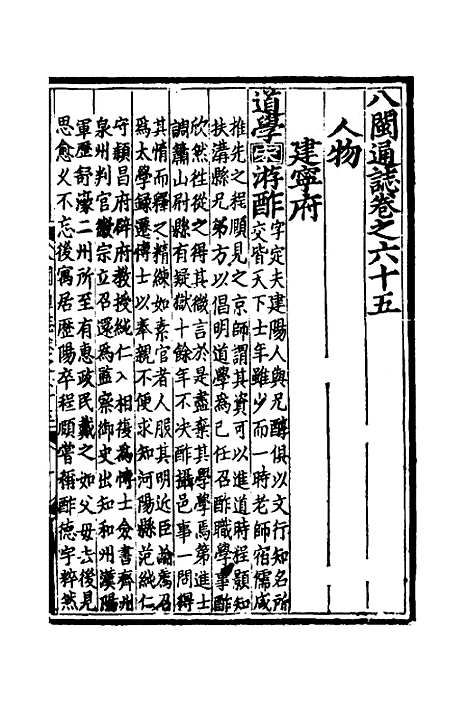 八閩通誌卷之六十五
人物
建寧府
道學宋游酢字定夫建陽人與兄醇俱以文行知名所
交皆天下士年雖少而一時老師宿儒咸
推先之程頤見之京師謂其資可以進道時程顥知
扶溝縣兄弟方以倡明道學為已任召酢職學事酢
欣然往從之得其微言於是盡棄其學學焉第進士
調蕭山尉縣有疑獄十餘年不决酢攝邑事一問得
其情而釋之精練如素官者人服其明近臣論薦召
為太學錄遷博士以奉親不便求知河陽縣范純仁
守頴昌府辟府教授純仁入相復為博士僉書齊州
泉州判官徽宗立召還為監察御史出知和州漢陽
軍歷舒濠二州所至有惠政民戴之如父母去後見
思愈乂不忘後寓居歷陽卒程頤嘗稱酢德宇粹然